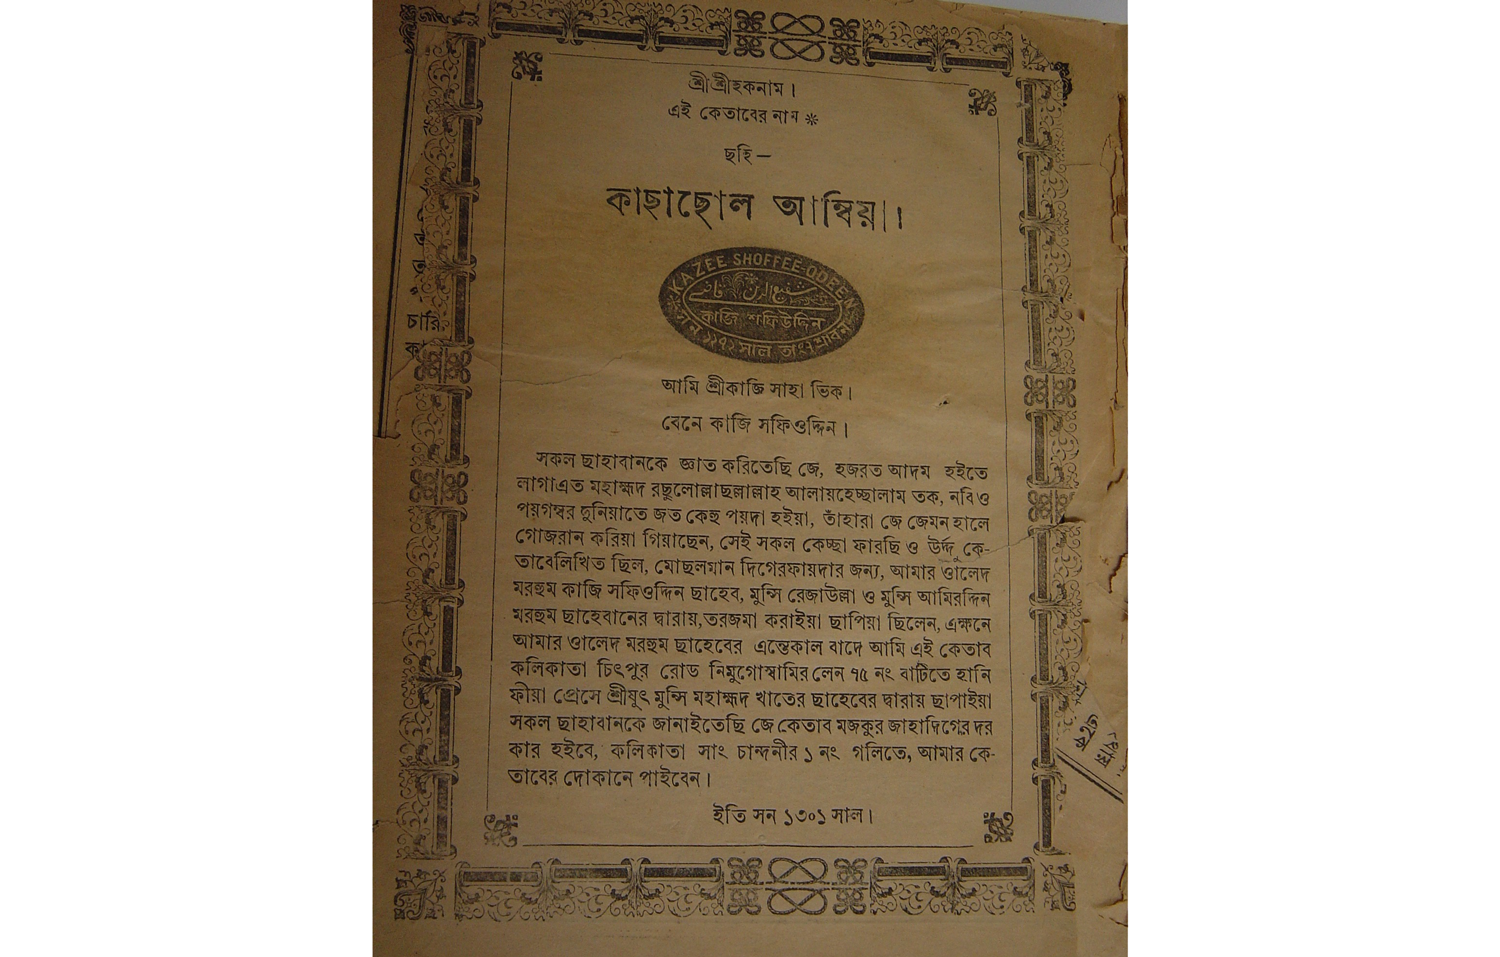 শ্রীশ্রীহকনাম।
এই কেতাবের নাম *
ছহি—
কাছাছোল আম্বিয়া।
KAZEE SHOFFEE-ODEEN
কাজি শফিউদ্দিন
সন ১২৭২ সাল তাং শ্রাবন
আমি শ্রীকাজি সাহা ভিক।
বেনে কাজি সফিওদ্দিন।
সকল ছাহাবানকে জ্ঞাত করিতেছি জে, হজরত আদম হইতে
লাগাএত মহাহ্মদ রছুলোল্লাছল্লাল্লাহ আলায়হেচ্ছালাম তক, নবি ও
পয়গম্বর দুনিয়াতে জত কেহু পয়দা হইয়া, তাঁহারা জে জেমন হালে
গোজরান করিয়া গিয়াছেন, সেই সকল কেচ্ছা ফারছি ও উর্দ্দু কে-
তাবেলিখিত ছিল, মোছলমান দিগেরফায়দার জন্য, আমার ওালেদ
মরহুম কাজি সফিওদ্দিন ছাহেব, মুন্সি রেজাউল্লা ও মুন্সি আমিরদ্দিন
মরহুম ছাহেবানের দ্বারায়, তরজমা করাইয়া ছাপিয়া ছিলেন, এক্ষনে
আমার ওালেদ মরহুম ছাহেবের এন্তেকাল বাদে আমি এই কেতাব
কলিকাতা চিৎপুর রোড নিমুগোস্বামির লেন ৭৫ নং বাটিতে হানি
ফীয়া প্রেসে শ্রীযুৎ মুন্সি মহাহ্মদ খাতের ছাহেবের দ্বারায় ছাপাইয়া
সকল ছাহাবানকে জানাইতেছি জে কেতাব মজকুর জাহাদিগের দর
কার হইবে, কলিকাতা সাং চান্দনীর ১ নং গলিতে, আমার কে-
তাবের দোকানে পাইবেন।
ইতি সন ১৩০১ সাল।
চারি